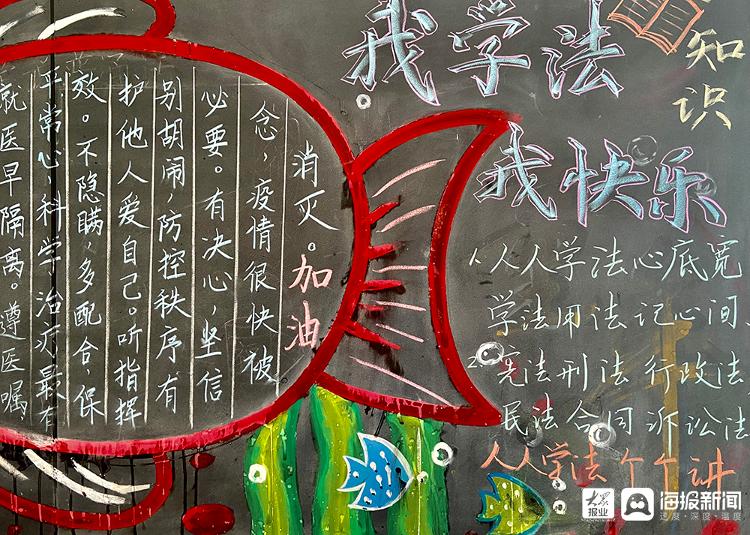 就医早隔离。遵医嘱
平常心,科学治疗最有
效。不隐瞒,多配合,保
护他人爱自己。听指挥
别胡闹,防控秩序有
必要。有决心,坚信
念,疫情很快被
消灭。加油
知识
我学法
我快乐
1、人人学法心底宽
学法用法记心间
2、宪法刑法行政法
民法合同诉讼法
人人学法个个讲
大众报业
海报新闻
速度·深度·温度